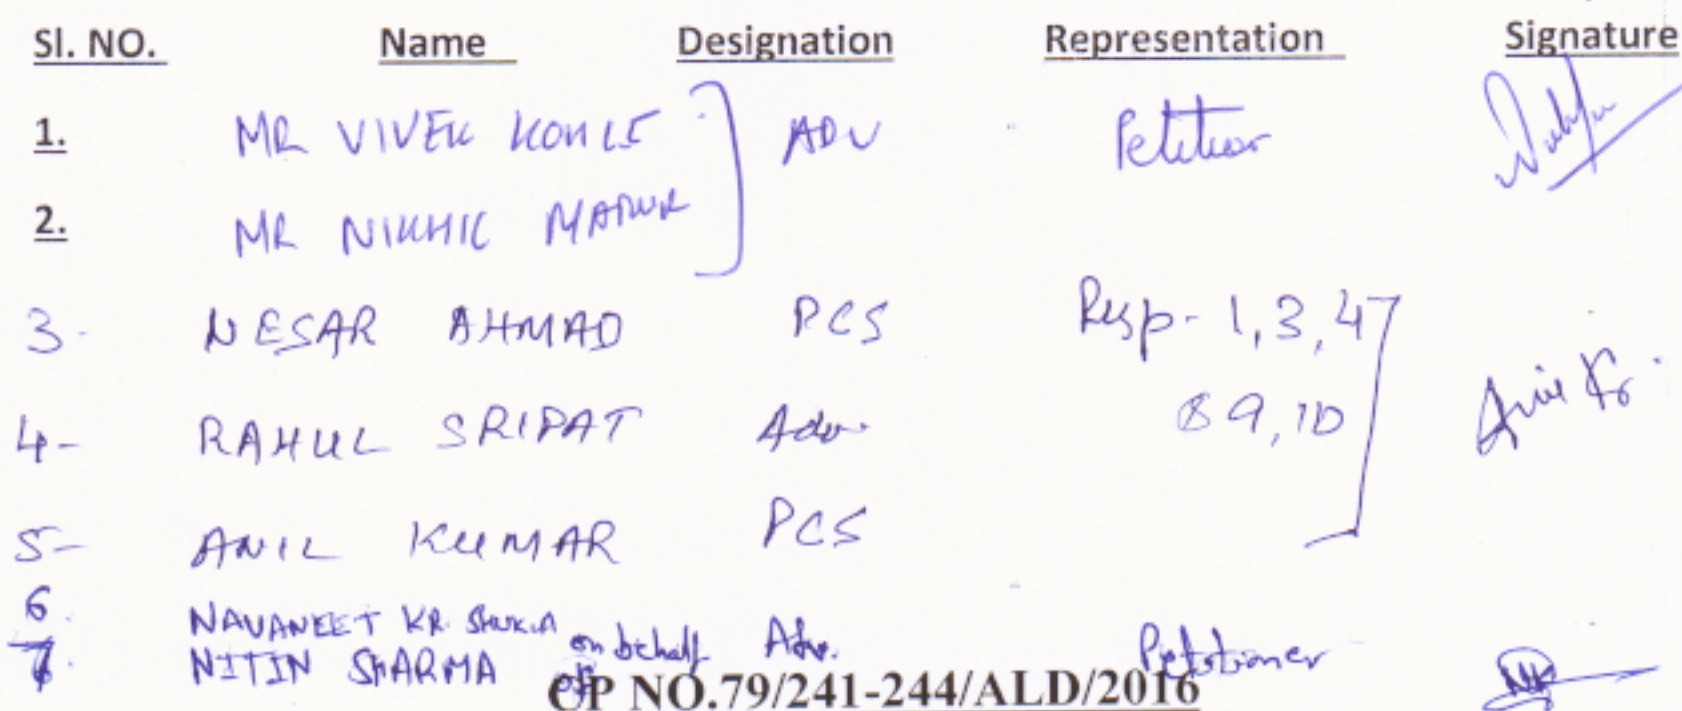 Sl. NO. Name Designation Representation Signature
1. MR VIVEK KOHLI ADV Petitioner
2. MR NIKHIL MATHUR
3- NESAR AHMAD PCS Resp- 1,3,4,7
4- RAHUL SRIPAT Adv. 8 9,10
5- ANIL KUMAR PCS
6. NAVANEET KR. SHUKLA
7. NITIN SHARMA on behalf of Adv. Petetioner
CP NO.79/241-244/ALD/2016